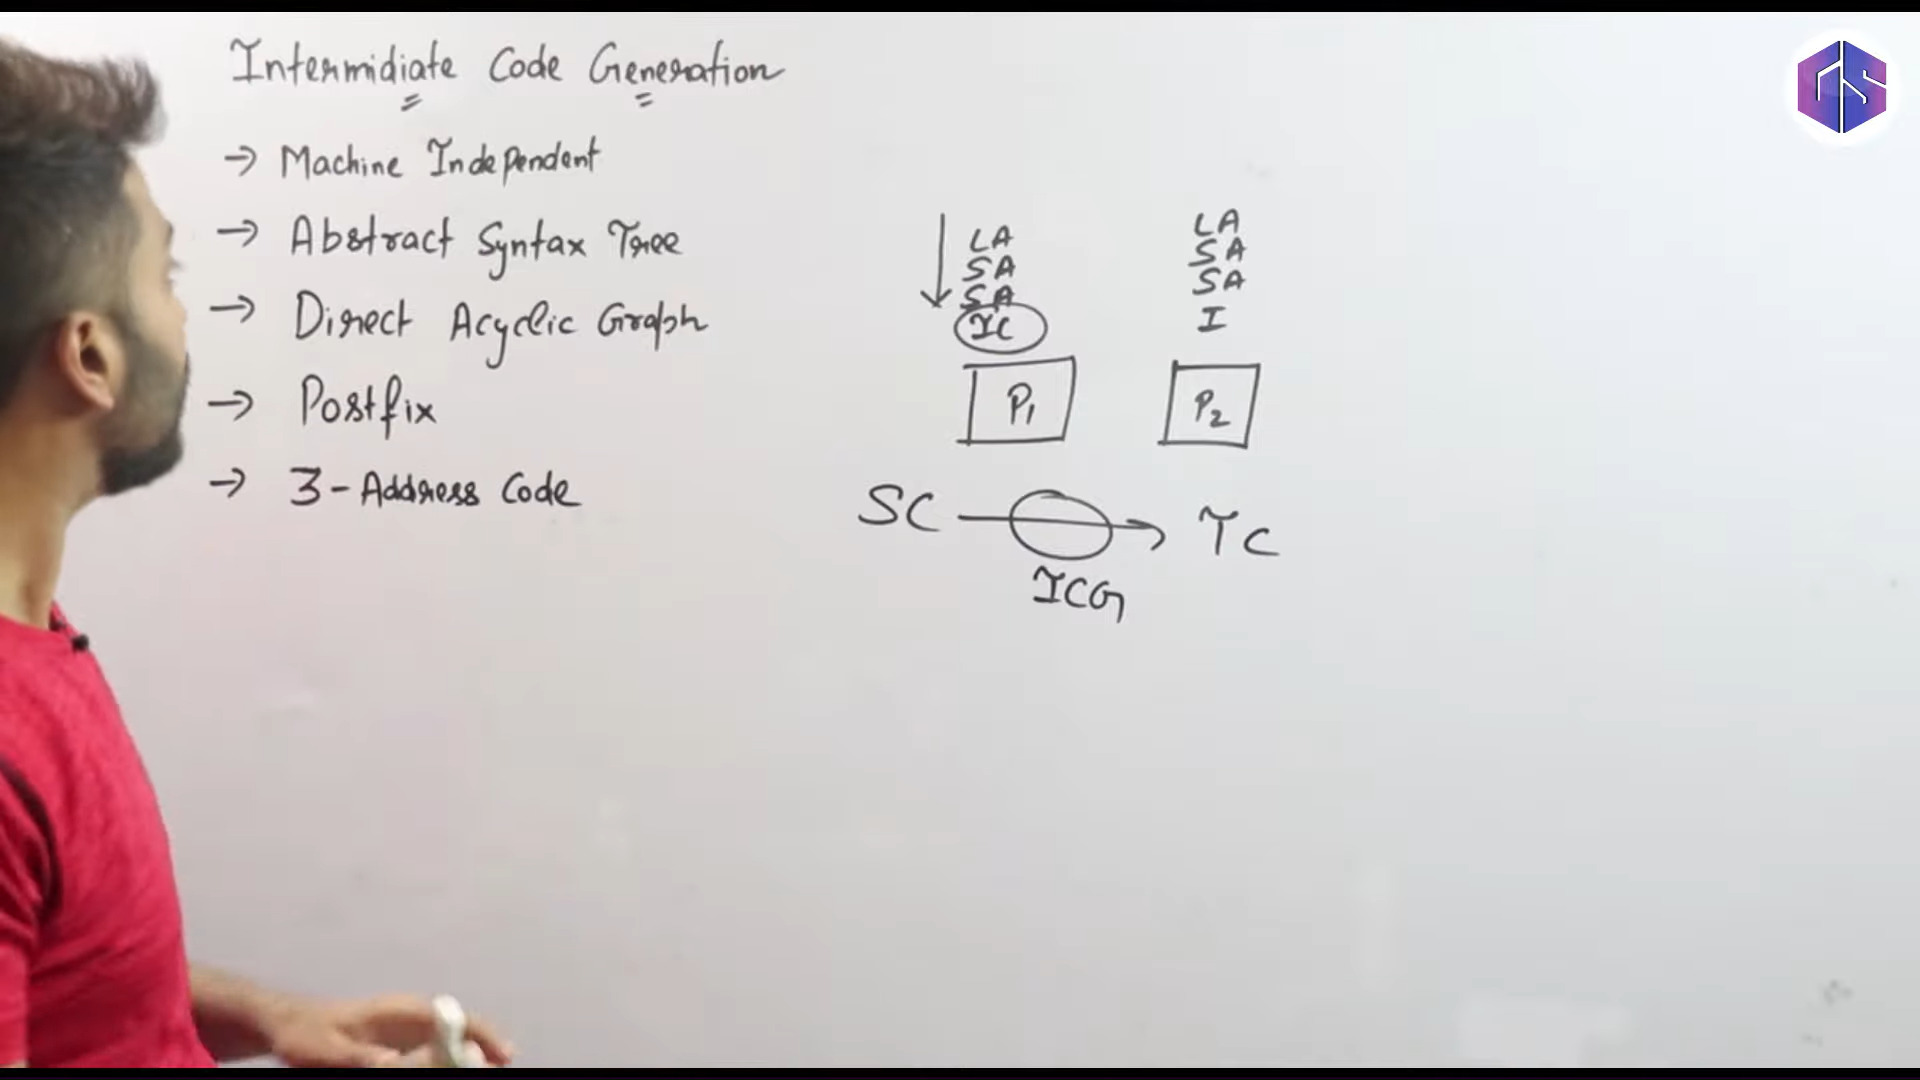 Intermidiate Code Generation
→ Machine Independent
→ Abstract Syntax Tree
→ Direct Acyclic Graph
→ Postfix
→ 3-Address Code
LA
SA
SA
IC
P1
LA
SA
SA
I
P2
SC → TC
ICG
GS